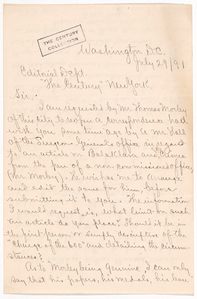 THE CENTURY
COLLECTION
Washington D.C.
July 29/91
Editorial Dept.
"The Century" New York
Sir:
I am requested by Mr Thomas Morley
of this City to reopen a correspondence had
with you some time ago by a Mr Ball
of the Surgeon General's office in regard
to an article on Balaklava and Crimea
from the pen of a non commissioned officer,
(Mr Morley). He wishes me to arrange
and edit the same for him, before
submitting it to you. The information
I would request is, what limit on such
an article do you place? Should it be in
the first person or simply descriptive of the
"Charge of the 600" and attending the circum-
stances?
As to Morley being Genuine I can only
say that his papers, his medals, his